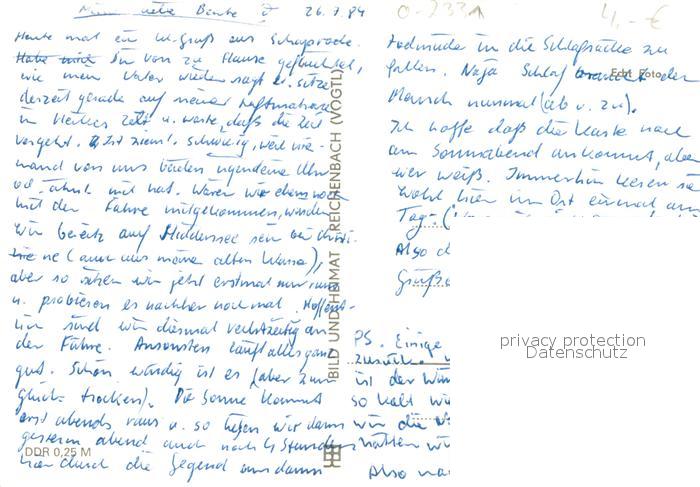 26.7.84
Heute mal ein U-Gruß aus Schaprode.
Bin von zu Hause geflüchtet,
wie mein Vater wieder sagt u. sitze
derzeit gerade auf meiner Luftmatratze
in Heikes Zelt u. warte, daß die Zeit
vergeht. Ist ziemlich schwierig, weil nie-
mand von uns beiden irgendeine Uhr
od. ähnl. mit hat. Wären wir eben noch
mit der Fähre mitgekommen, würden
wir bereits auf Hiddensee sein bei
(auch aus meine alten
aber so sitzen wir jetzt erstmal nur rum
u. probieren es nachher noch mal. Hoffent-
lich sind wir diesmal rechtzeitig an
der Fähre. Ansonsten läuft alles ganz
gut. Schön windig ist es (aber zum
Glück trocken). Die Sonne kommt
erst abends raus u. so liefen wir dann
gestern abend auch noch 4 Stunden
hier durch die Gegend um dann
DDR 0,25 M
BILD UND HEIMAT REICHENBACH (VOGTL)
4,- €
todmüde in die Schlafsäcke zu
fallen. Naja Schlaf braucht der
Echt Foto
Mensch nunmal (ab u. zu).
Ich hoffe daß die Karte noch
am Sonnabend ankommt, aber
wer weiß. Immerhin leeren sie
wohl hier im Ort einmal am
Tag
Also
Grüße
PS. Einige
zurück.
ist der
so kalt
wir die
hätten
Also
privacy protection
Datenschutz